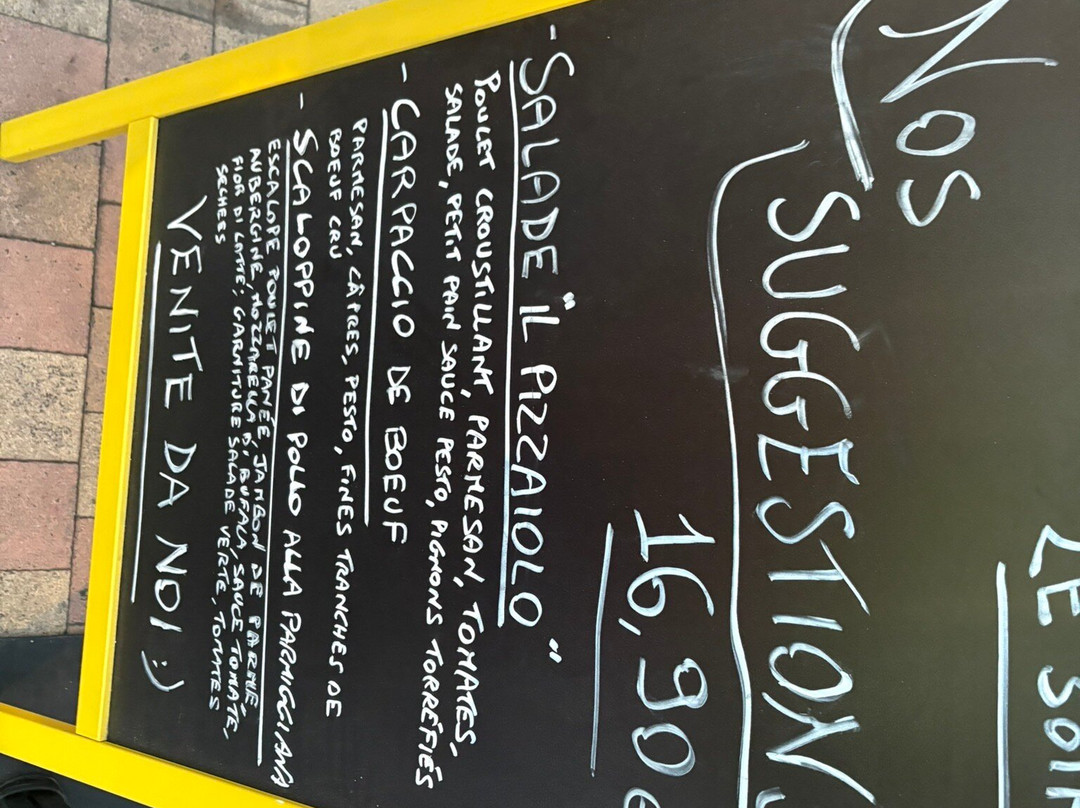 LE SOIR
NOS
SUGGESTIONS
16,90€
- SALADE "IL PIZZAIOLO"
POULET CROUSTILLANT, PARMESAN, TOMATES,
SALADE, PETIT PAIN SAUCE PESTO, PIGNONS TORRÉFIÉS
- CARPACCIO DE BOEUF
PARMESAN, CÂPRES, PESTO, FINES TRANCHES DE
BOEUF CRU
- SCALOPPINE DI POLLO ALLA PARMIGGIANA
ESCALOPE POULET PANÉE, JAMBON DE PARME,
AUBERGINE, MOZZARELLA D, BUFALA, SAUCE TOMATE,
FIOR DI LATTE; GARNITURE SALADE VERTE, TOMATES
SECHEES
VENITE DA NOI :)